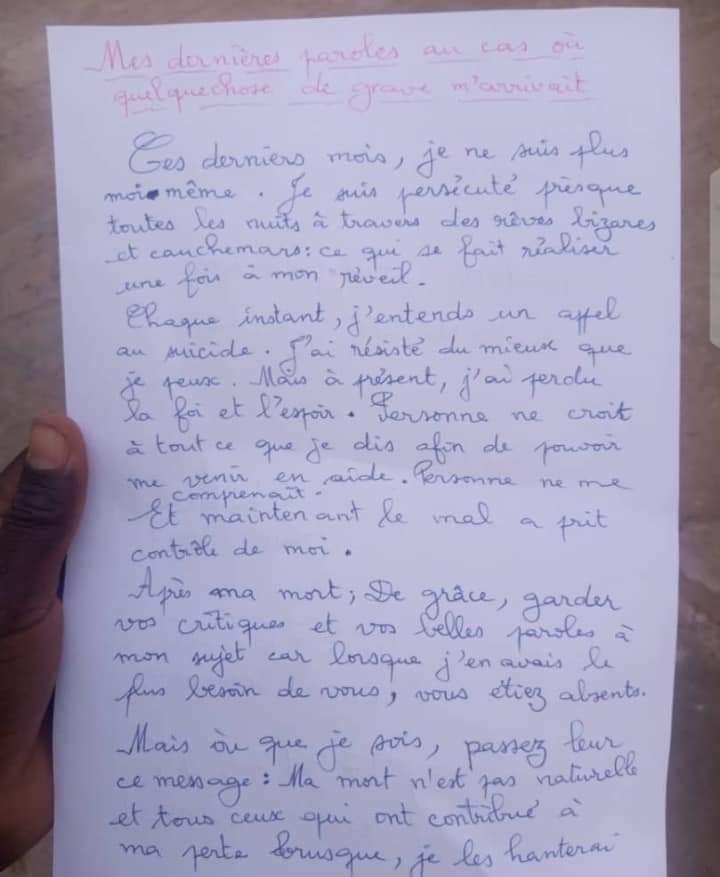 Mes dernières paroles au cas où
quelquechose de grave m'arrivait
Ces derniers mois, je ne suis plus
moi même. Je suis persécuté presque
toutes les nuits à travers des rêves bizares
et cauchemars: ce qui se fait réaliser
une fois à mon réveil.
Chaque instant, j'entends un appel
au suicide. J'ai résisté du mieux que
je peux. Mais à présent, j'ai perdu
la foi et l'espoir. Personne ne croit
à tout ce que je dis afin de pouvoir
me venir en aide. Personne ne me
comprenait.
Et maintenant le mal a prit
contrôle de moi.
Après ma mort; De grâce, garder
vos critiques et vos belles paroles à
mon sujet car lorsque j'en avais le
plus besoin de vous, vous étiez absents.
Mais où que je sois, passez leur
ce message: Ma mort n'est pas naturelle
et tous ceux qui ont contribué à
ma perte brusque, je les hanterai